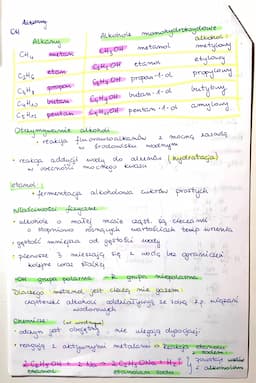 Alkany
Alkohole monohydroksylowe
Alkany
alkohol:
CH₄ metan CH₃OH metanol metylowy
etan etanol etylowy
propan propan-1-ol propylowy
butan butan-1-ol butylowy
pentan pentan-1-ol amylowy
Otrzymywanie alkoholi
• reakcja fluorowcoalkanów z mocną zasadą
w środowisku wodnym
• reakcja addycji wody do alkenów (hydratacja)
w obecności mocnego kwasu
etanol:
• fermentacja alkoholowa cukrów prostych
Właściwości fizyczne
• alkohole o małej masie cząst. są cieczami
o stopniowo rosnących wartościach temp. wrzenia
• gęstość mniejsza od gęstości wody
• pierwsze 3 mieszają się z wodą bez ograniczeń
kolejne coraz słabiej
-OH grupa polarna -R grupa niepolarna
Dlaczego metanol jest cieczą nie gazem
cząsteczki alkoholi oddziaływują ze sobą z p. wiązań
wodorowych
chemiczne (w wodnym)
• odczyn jest obojętny, nie ulegają dysocjacji
• reagują z aktywnymi metalami → Reakcja etanolu
z sodem
2 C₂H₅OH + 2 Na → 2 C₂H₅ONa + H₂↑
etanol etanolan sodu